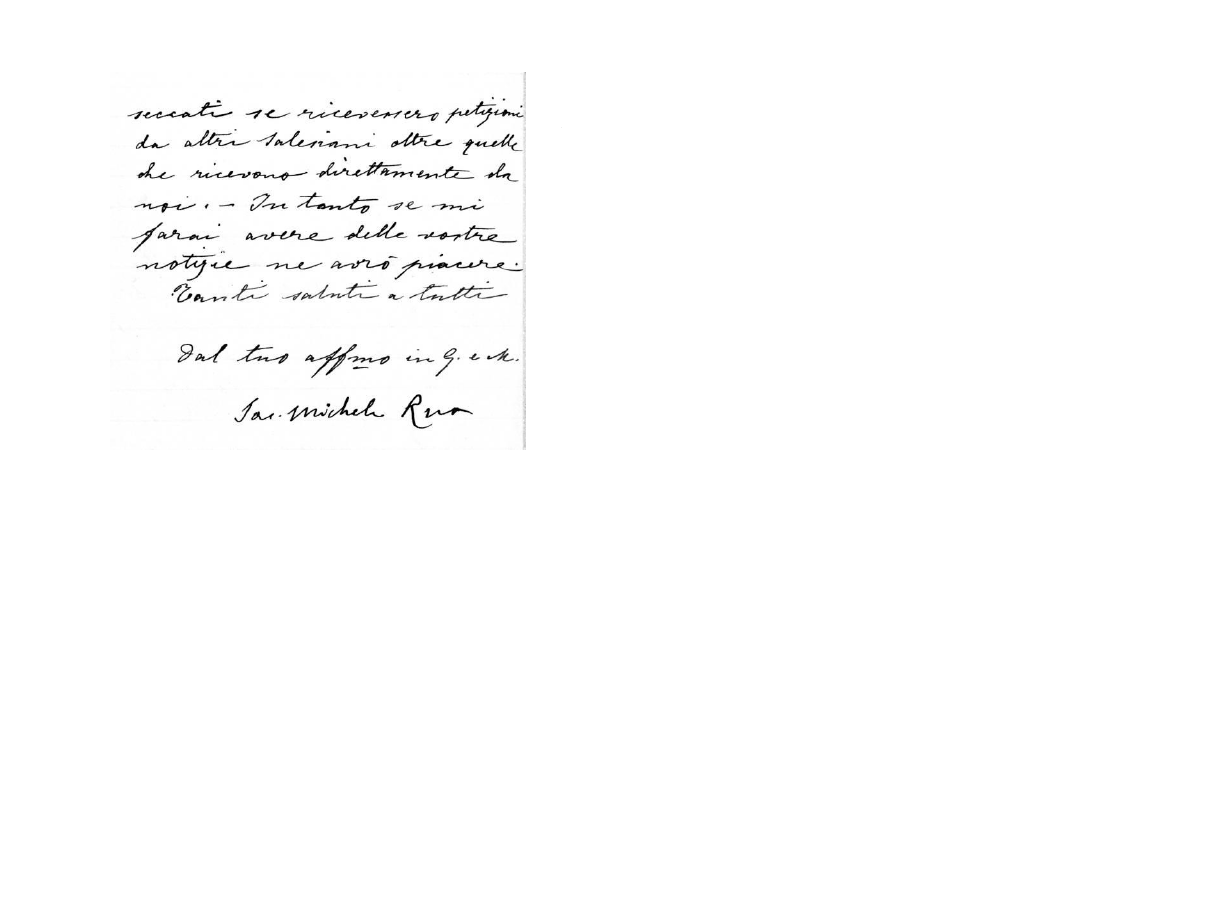 seccati se ricevessero petizioni
da altri Salesiani oltre quelle
che ricevono direttamente da
noi. - In tanto se mi
farai avere delle vostre
notizie ne avrò piacere.
Tanti saluti a tutti
Dal tuo affmo in G. e M.
Sac. Michele Rua